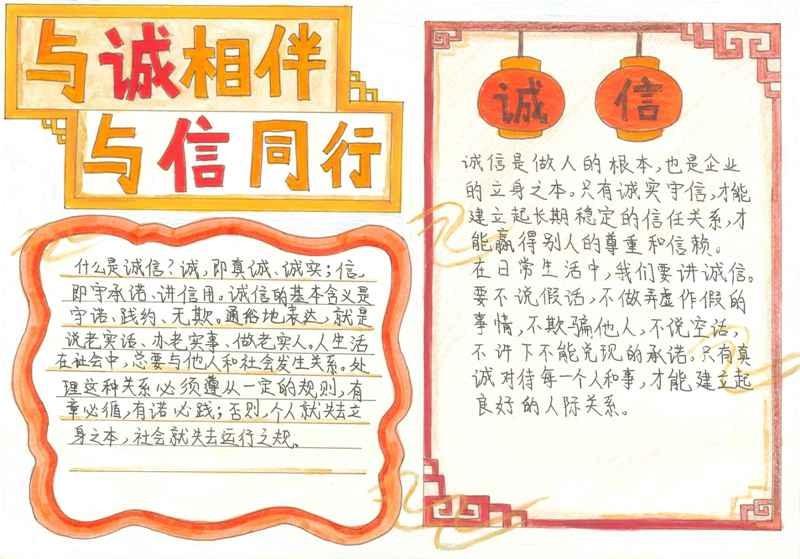 与诚相伴
与信同行
什么是诚信？诚，即真诚、诚实；信，
即守承诺、讲信用。诚信的基本含义是
守诺、践约、无欺。通俗地表达，就是
说老实话、办老实事、做老实人。人生活
在社会中，总要与他人和社会发生关系。处
理这种关系必须遵从一定的规则，有
章必循，有诺必践；否则，个人就失去立
身之本，社会就失去运行之规。
诚 信
诚信是做人的根本，也是企业
的立身之本。只有诚实守信，才能
建立起长期稳定的信任关系，才
能赢得别人的尊重和信赖。
在日常生活中，我们要讲诚信。
要不说假话，不做弄虚作假的
事情，不欺骗他人，不说空话，
不许下不能兑现的承诺。只有真
诚对待每一个人和事，才能建立起
良好的人际关系。